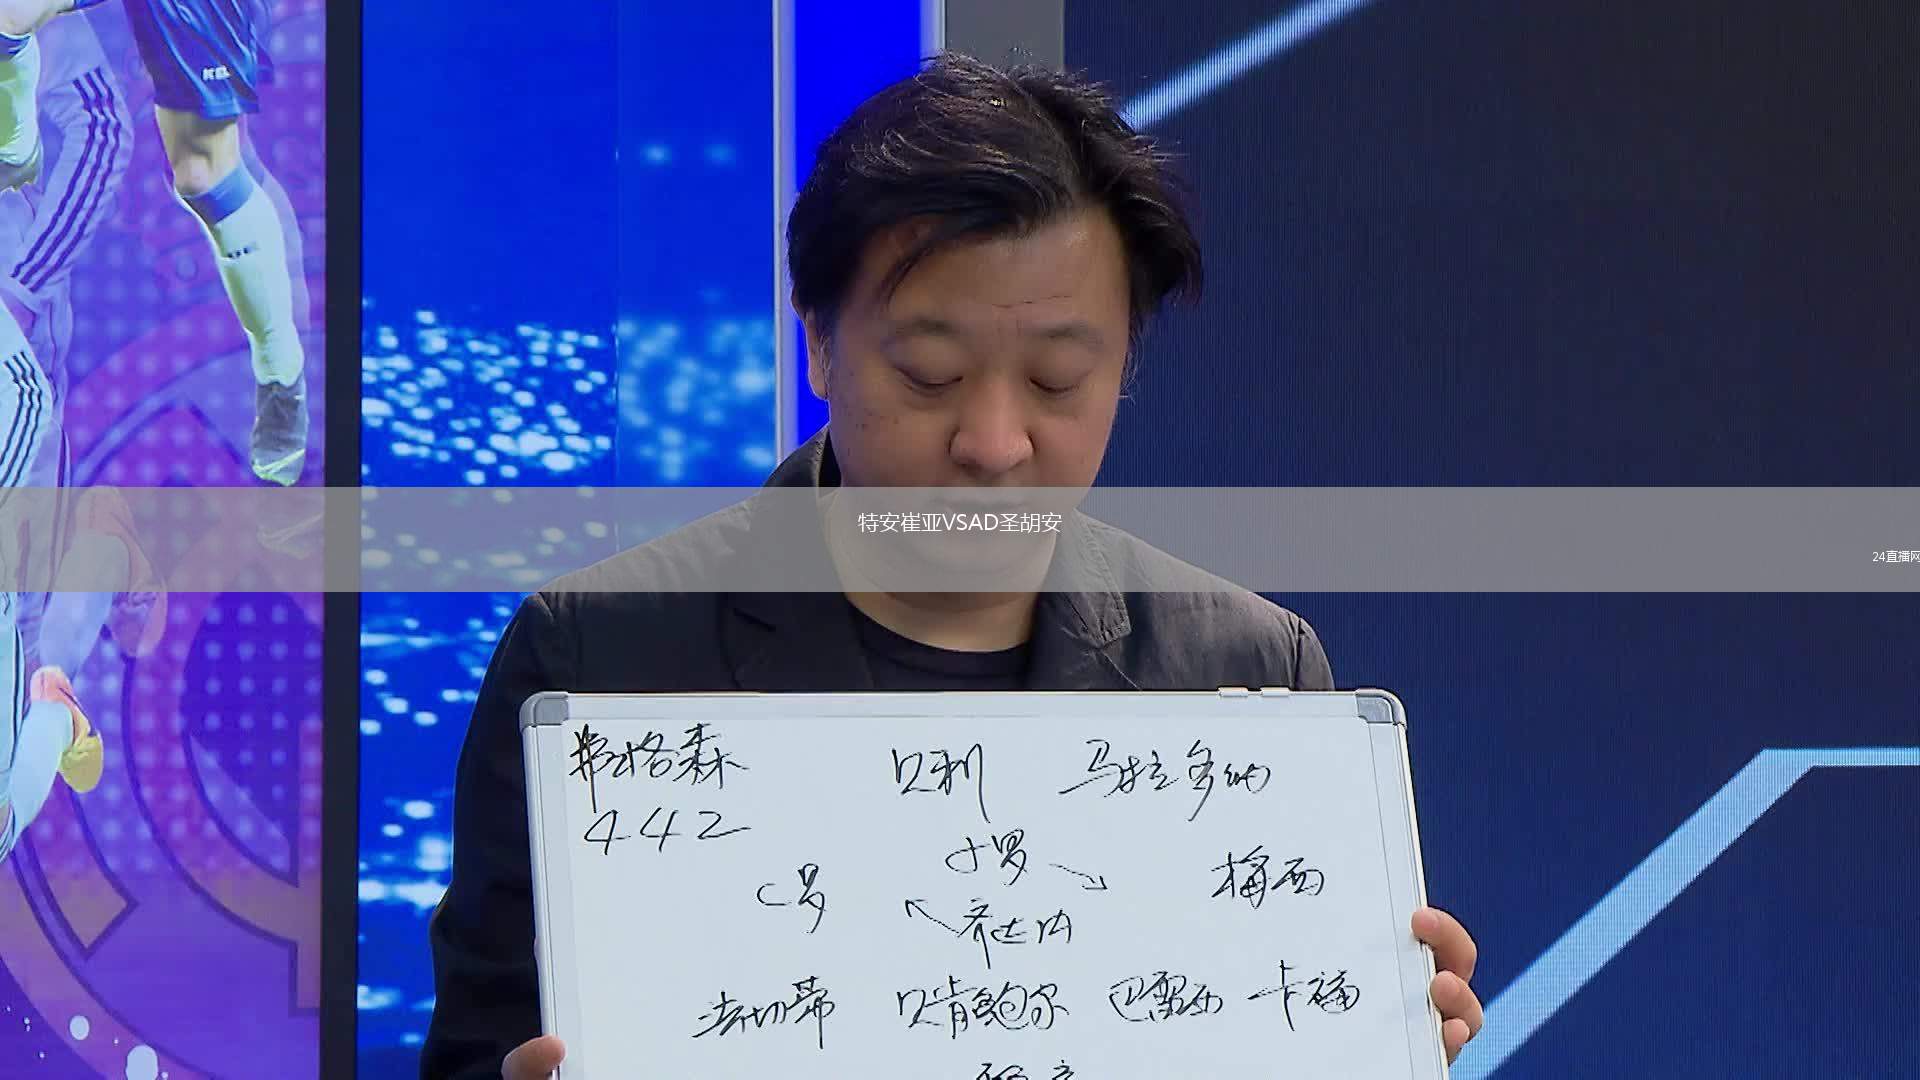 KEL
特安崔亚VSAD圣胡安
24直播网
弗格森 贝利 马拉多纳
442
小罗
C罗 梅西
齐达内
法切蒂 贝肯鲍尔 巴雷西 卡福